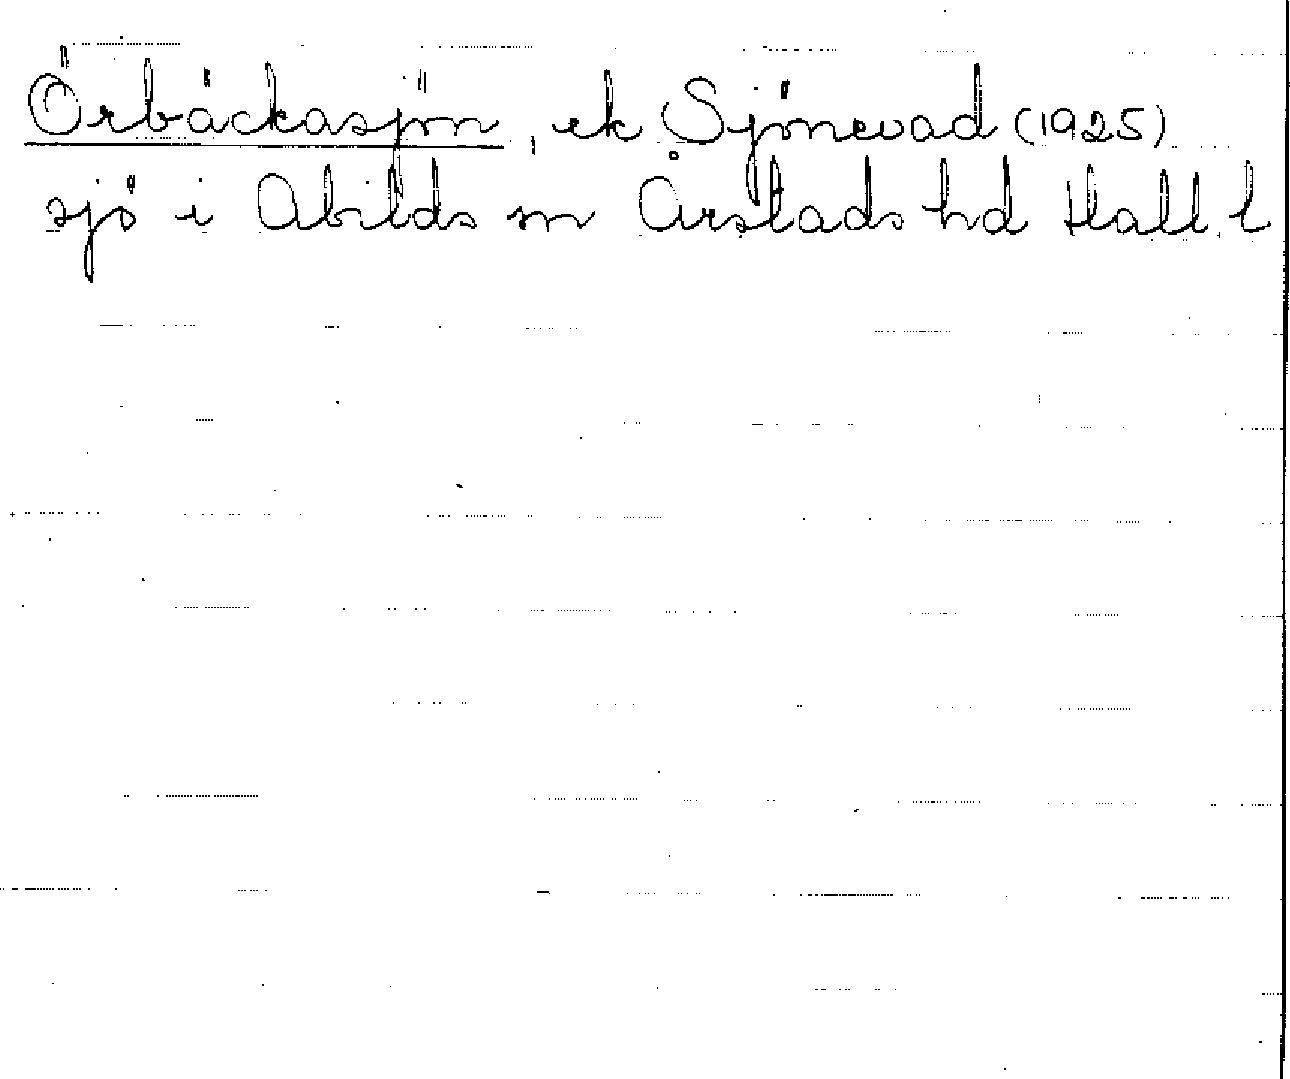 Örbäckasjön, ek Sjönevad (1925)
sjö i Abilds sn Årstads hd Hall. l